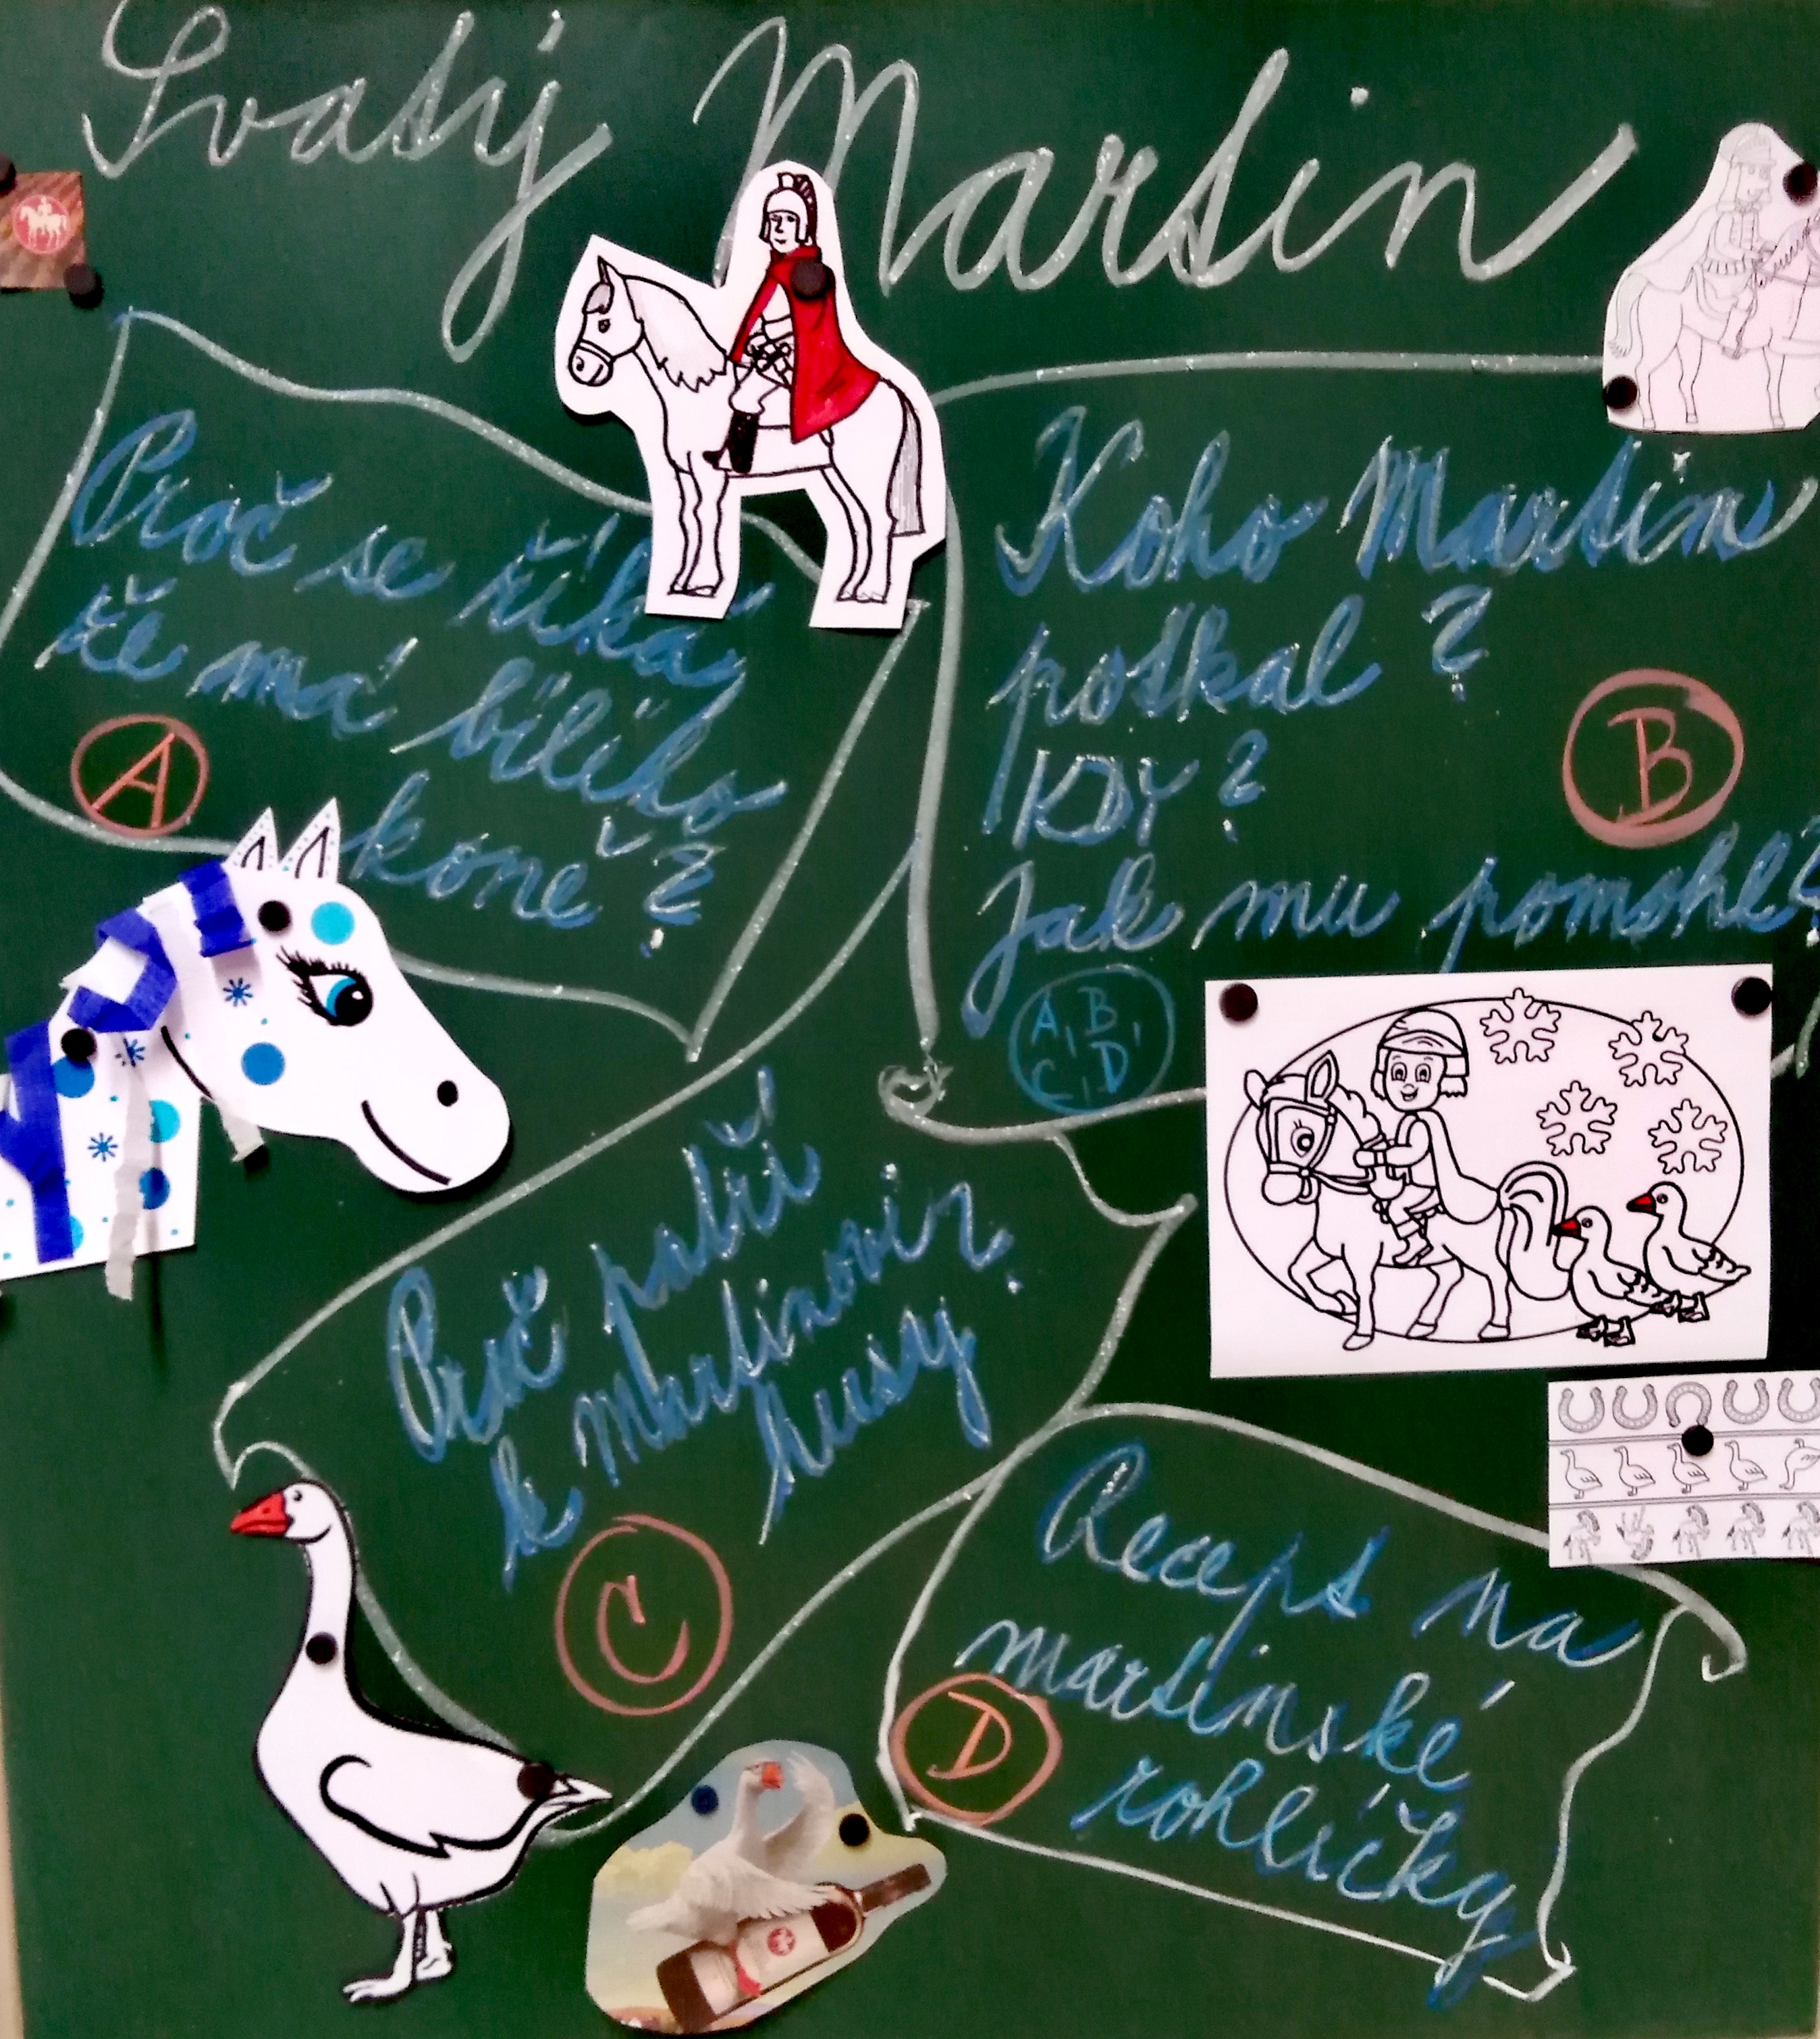 Svatý Martin
Proč se říká
že má bílého
koně?
A
Koho Martin
potkal?
KDY?
Jak mu pomohl?
B
A, B,
C, D
Proč patří
k Martinovi
husy
C
Recept na
martinské
rohlíčky
D